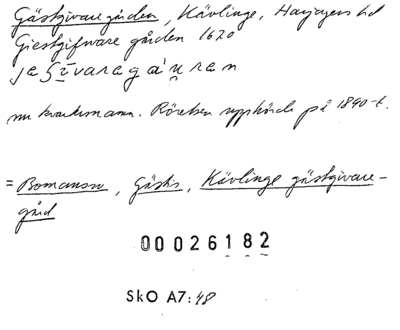 Gästgivaregården, Kävlinge, Harjagers hd
Giestgifware gården 1620
nu kvartersnamn. Rörelsen upphörde på 1890-t.
= Bomanson, Gästis, Kävlinge gästgivare-
gård
00026182
SkO A7:48